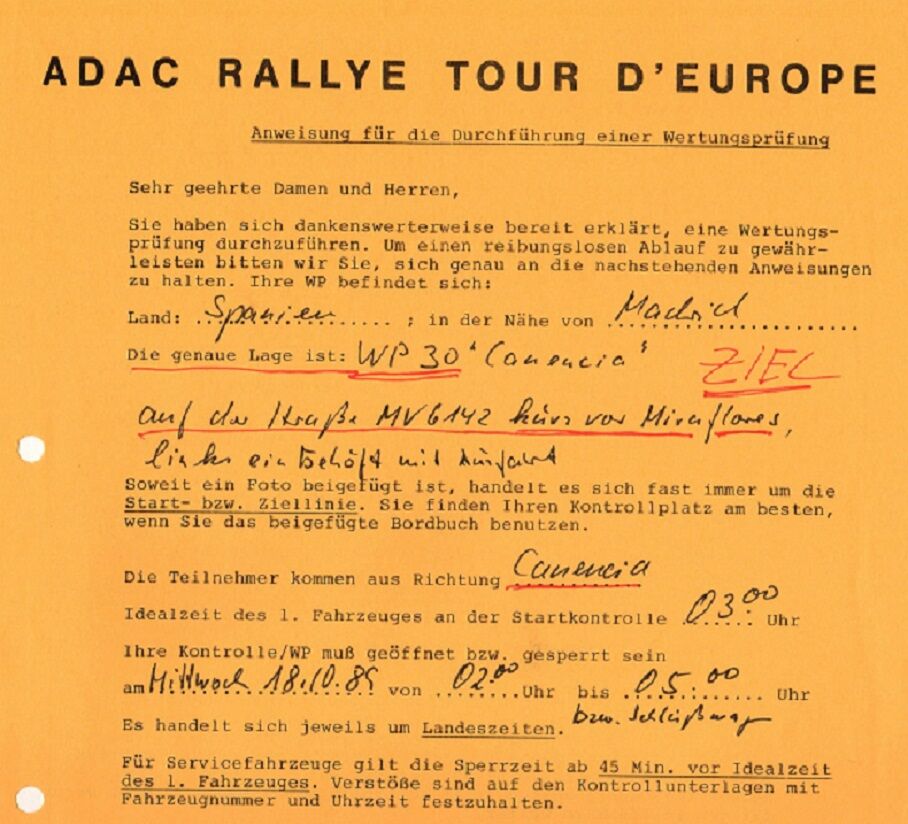 ADAC RALLYE TOUR D'EUROPE
Anweisung für die Durchführung einer Wertungsprüfung
Sehr geehrte Damen und Herren,
Sie haben sich dankenswerterweise bereit erklärt, eine Wertungs-
prüfung durchzuführen. Um einen reibungslosen Ablauf zu gewähr-
leisten bitten wir Sie, sich genau an die nachstehenden Anweisungen
zu halten. Ihre WP befindet sich:
Land: Spanien ; in der Nähe von Madrid
Die genaue Lage ist: WP 30 "Canencia" ZIEL
auf der Straße MV 6142 kurz vor Miraflores,
links ein Gehöft mit
Soweit ein Foto beigefügt ist, handelt es sich fast immer um die
Start- bzw. Ziellinie. Sie finden Ihren Kontrollplatz am besten,
wenn Sie das beigefügte Bordbuch benutzen.
Die Teilnehmer kommen aus Richtung Canencia
Idealzeit des 1. Fahrzeuges an der Startkontrolle 03.00 Uhr
Ihre Kontrolle/WP muß geöffnet bzw. gesperrt sein
am Mittwoch 18.10.89 von 02.00 Uhr bis 05.00 Uhr
Es handelt sich jeweils um Landeszeiten. bzw. Schlußwagen
Für Servicefahrzeuge gilt die Sperrzeit ab 45 Min. vor Idealzeit
des 1. Fahrzeuges. Verstöße sind auf den Kontrollunterlagen mit
Fahrzeugnummer und Uhrzeit festzuhalten.